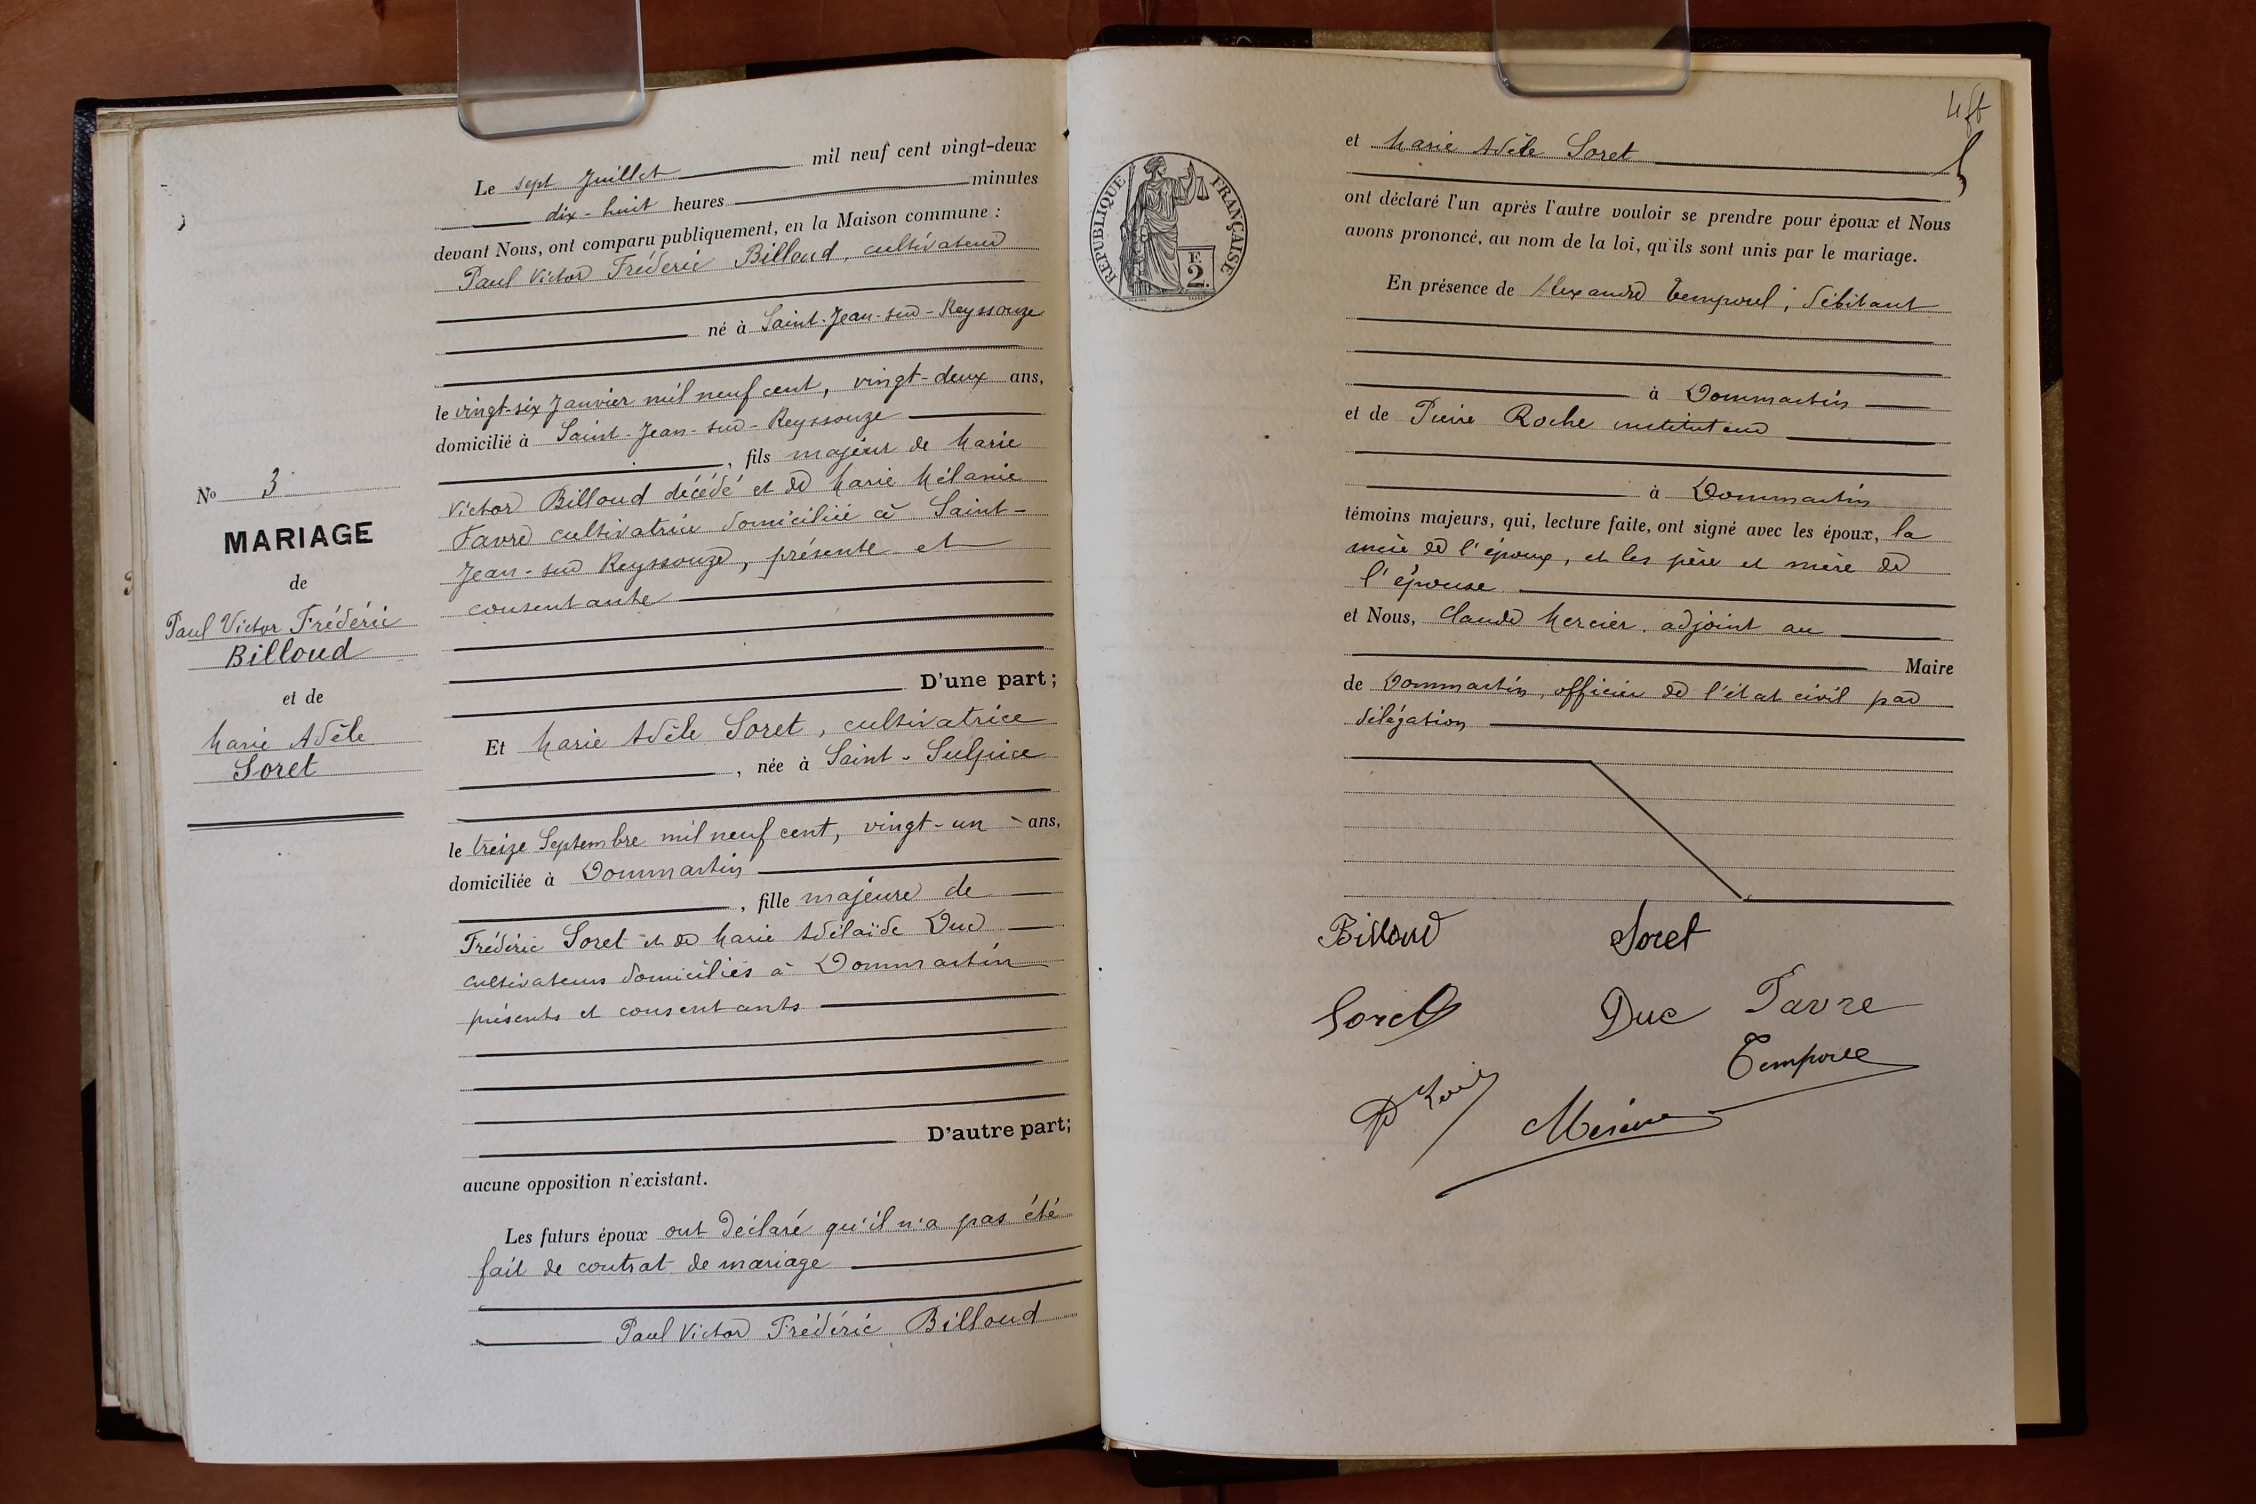 No 3
MARIAGE
de
Paul Victor Frédéric
Billoud
et de
Marie Adèle
Soret
Le sept Juillet mil neuf cent vingt-deux
dix-huit heures minutes
devant Nous, ont comparu publiquement, en la Maison commune :
Paul Victor Frédéric Billoud, cultivateur
né à Saint-Jean-sur-Reyssouze
le vingt-six Janvier mil neuf cent, vingt-deux ans,
domicilié à Saint-Jean-sur-Reyssouze
, fils majeur de Marie
Victor Billoud décédé et de Marie Mélanie
Favre cultivatrice domiciliée à Saint-
Jean-sur Reyssouze, présente et
consentante
D'une part;
Et Marie Adèle Soret, cultivatrice
, née à Saint-Sulpice
le treize Septembre mil neuf cent, vingt-un ans,
domiciliée à Dommartin
, fille majeure de
Frédéric Soret et de Marie Adélaïde Duc
cultivateurs domiciliés à Dommartin
présents et consentants
D'autre part;
aucune opposition n'existant.
Les futurs époux ont déclaré qu'il n'a pas été
fait de contrat de mariage
Paul Victor Frédéric Billoud
RÉPUBLIQUE FRANÇAISE
F.
2.
et Marie Adèle Soret
ont déclaré l'un après l'autre vouloir se prendre pour époux et Nous
avons prononcé, au nom de la loi, qu'ils sont unis par le mariage.
En présence de Alexandre Temporel, débitant
à Dommartin
et de Pierre Roche instituteur
à Dommartin
témoins majeurs, qui, lecture faite, ont signé avec les époux, la
mère de l'époux, et les père et mère de
l'épouse
et Nous, Claude Mercier, adjoint au
Maire
de Dommartin, officier de l'état civil par
délégation
Billoud Soret
Soret Duc Favre
Mercier